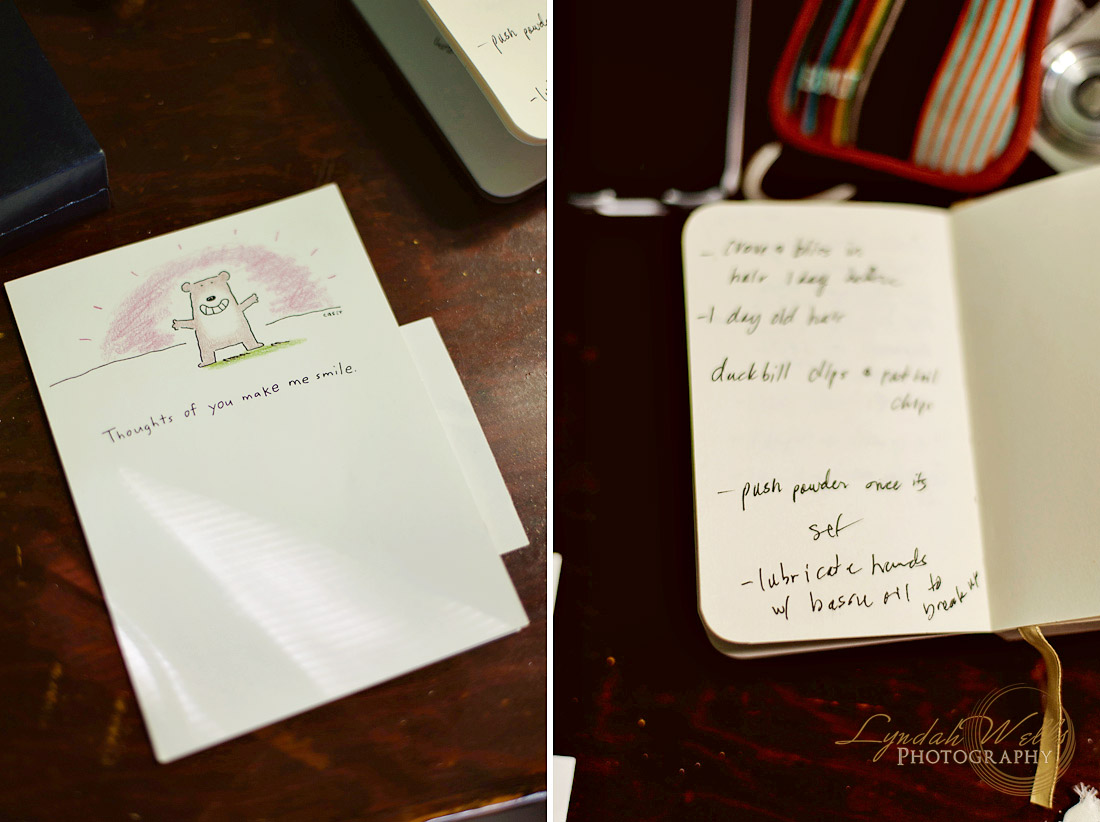 - push powd
Thoughts of you make me smile.
hair 1 day
-1 day old hair
duckbill clips +
clips
- push powder once its
set
- lubricate hands
w/ oil to
break up
Lyndah Wells
PHOTOGRAPHY